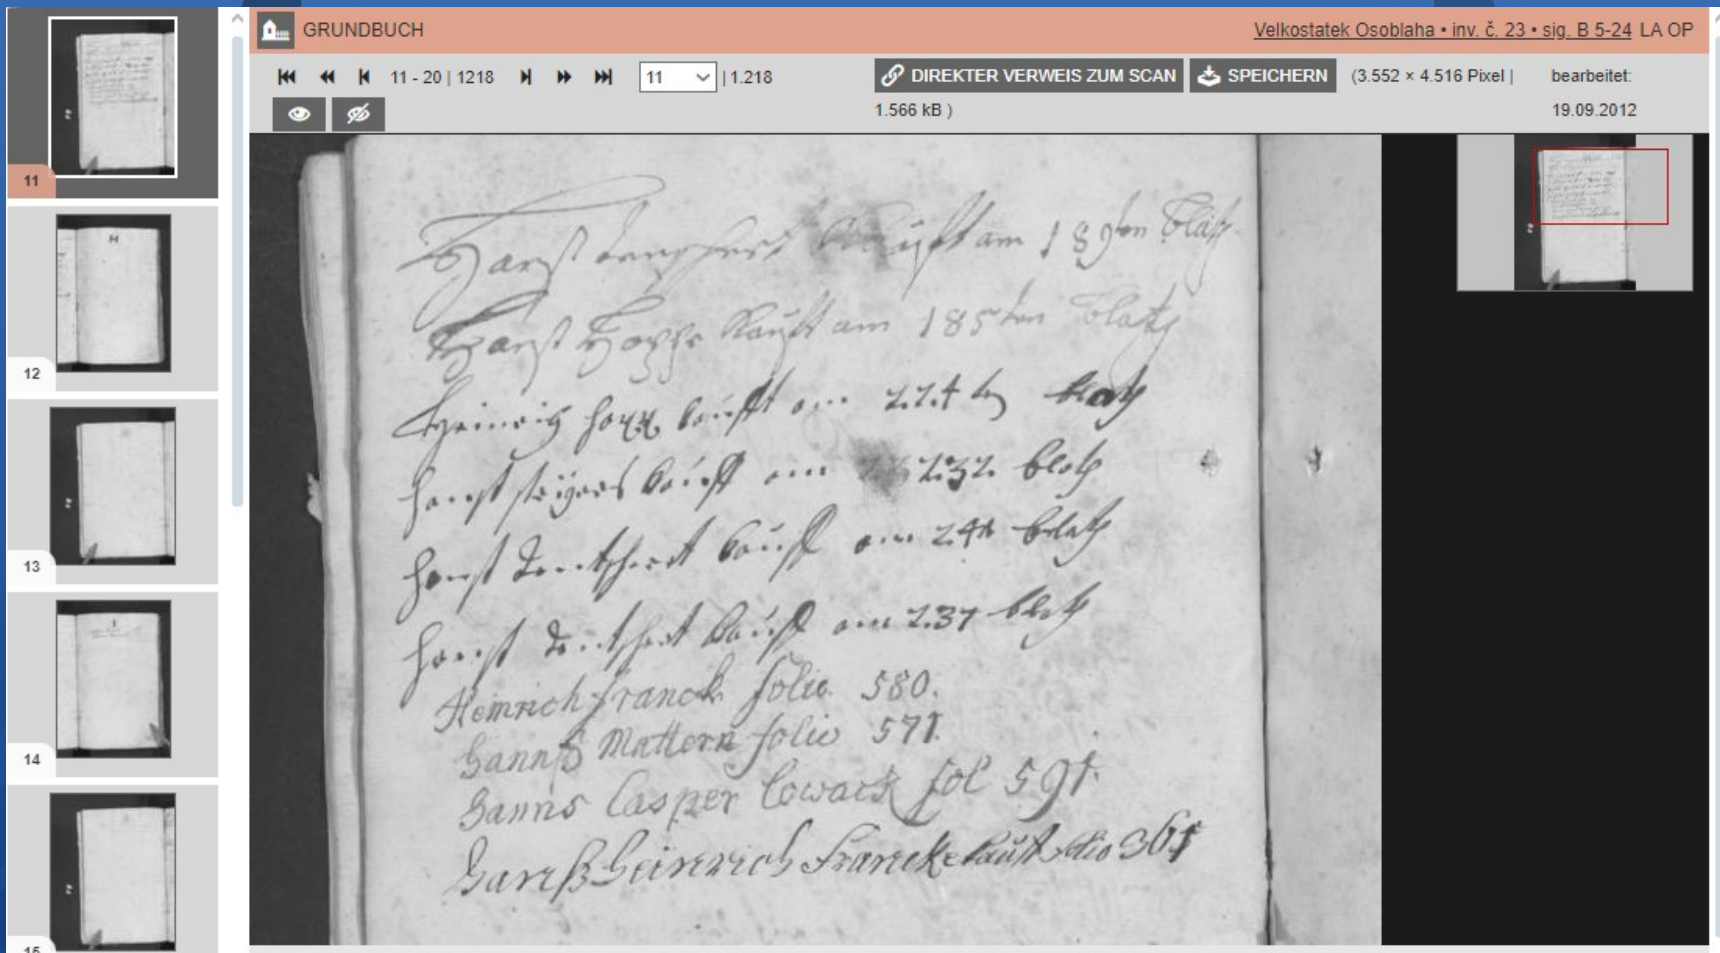 GRUNDBUCH
Velkostatek Osoblaha • inv. č. 23 • sig. B 5-24 LA OP
11 - 20 | 1218
11 | 1.218
DIREKTER VERWEIS ZUM SCAN
SPEICHERN
(3.552 × 4.516 Pixel |
1.566 kB )
bearbeitet:
19.09.2012
11
12
13
14
15
H
I
Hanß kaufft am 189ten blat
Hanß Hoppe kaufft am 185ten blatz
Heinrich kaufft am 224 blatz
Hanß kaufft am 232 blatz
Hanß kaufft am blatz
Hanß kaufft am 237 blatz
Heinrich Franck folio 580.
Hannß Mattern folio 571.
Hanns Casper Cowack fol 591.
Hanß Heinrich Francke kaufft folio 361